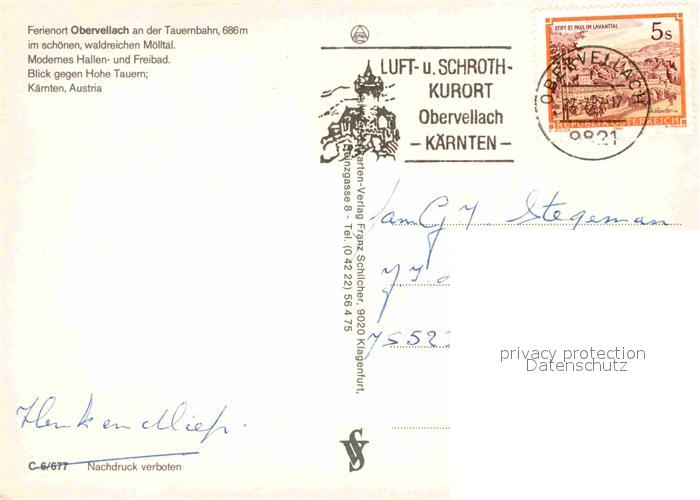 Ferienort Obervellach an der Tauernbahn, 686 m
im schönen, waldreichen Mölltal.
Modernes Hallen- und Freibad.
Blick gegen Hohe Tauern;
Kärnten, Austria
LUFT- u. SCHROTH-
KURORT
Obervellach
– KÄRNTEN –
STIFT ST. PAUL IM LAVANTTAL
5s
REPUBLIK ÖSTERREICH
OBERVELLACH
9821
karten-Verlag Franz Schilcher, 9020 Klagenfurt,
gasse 8 - Tel. (0 42 22) 56 4 75
Fam G Y. Stegeman
privacy protection
Datenschutz
Henk en Miep.
C 6/677 Nachdruck verboten